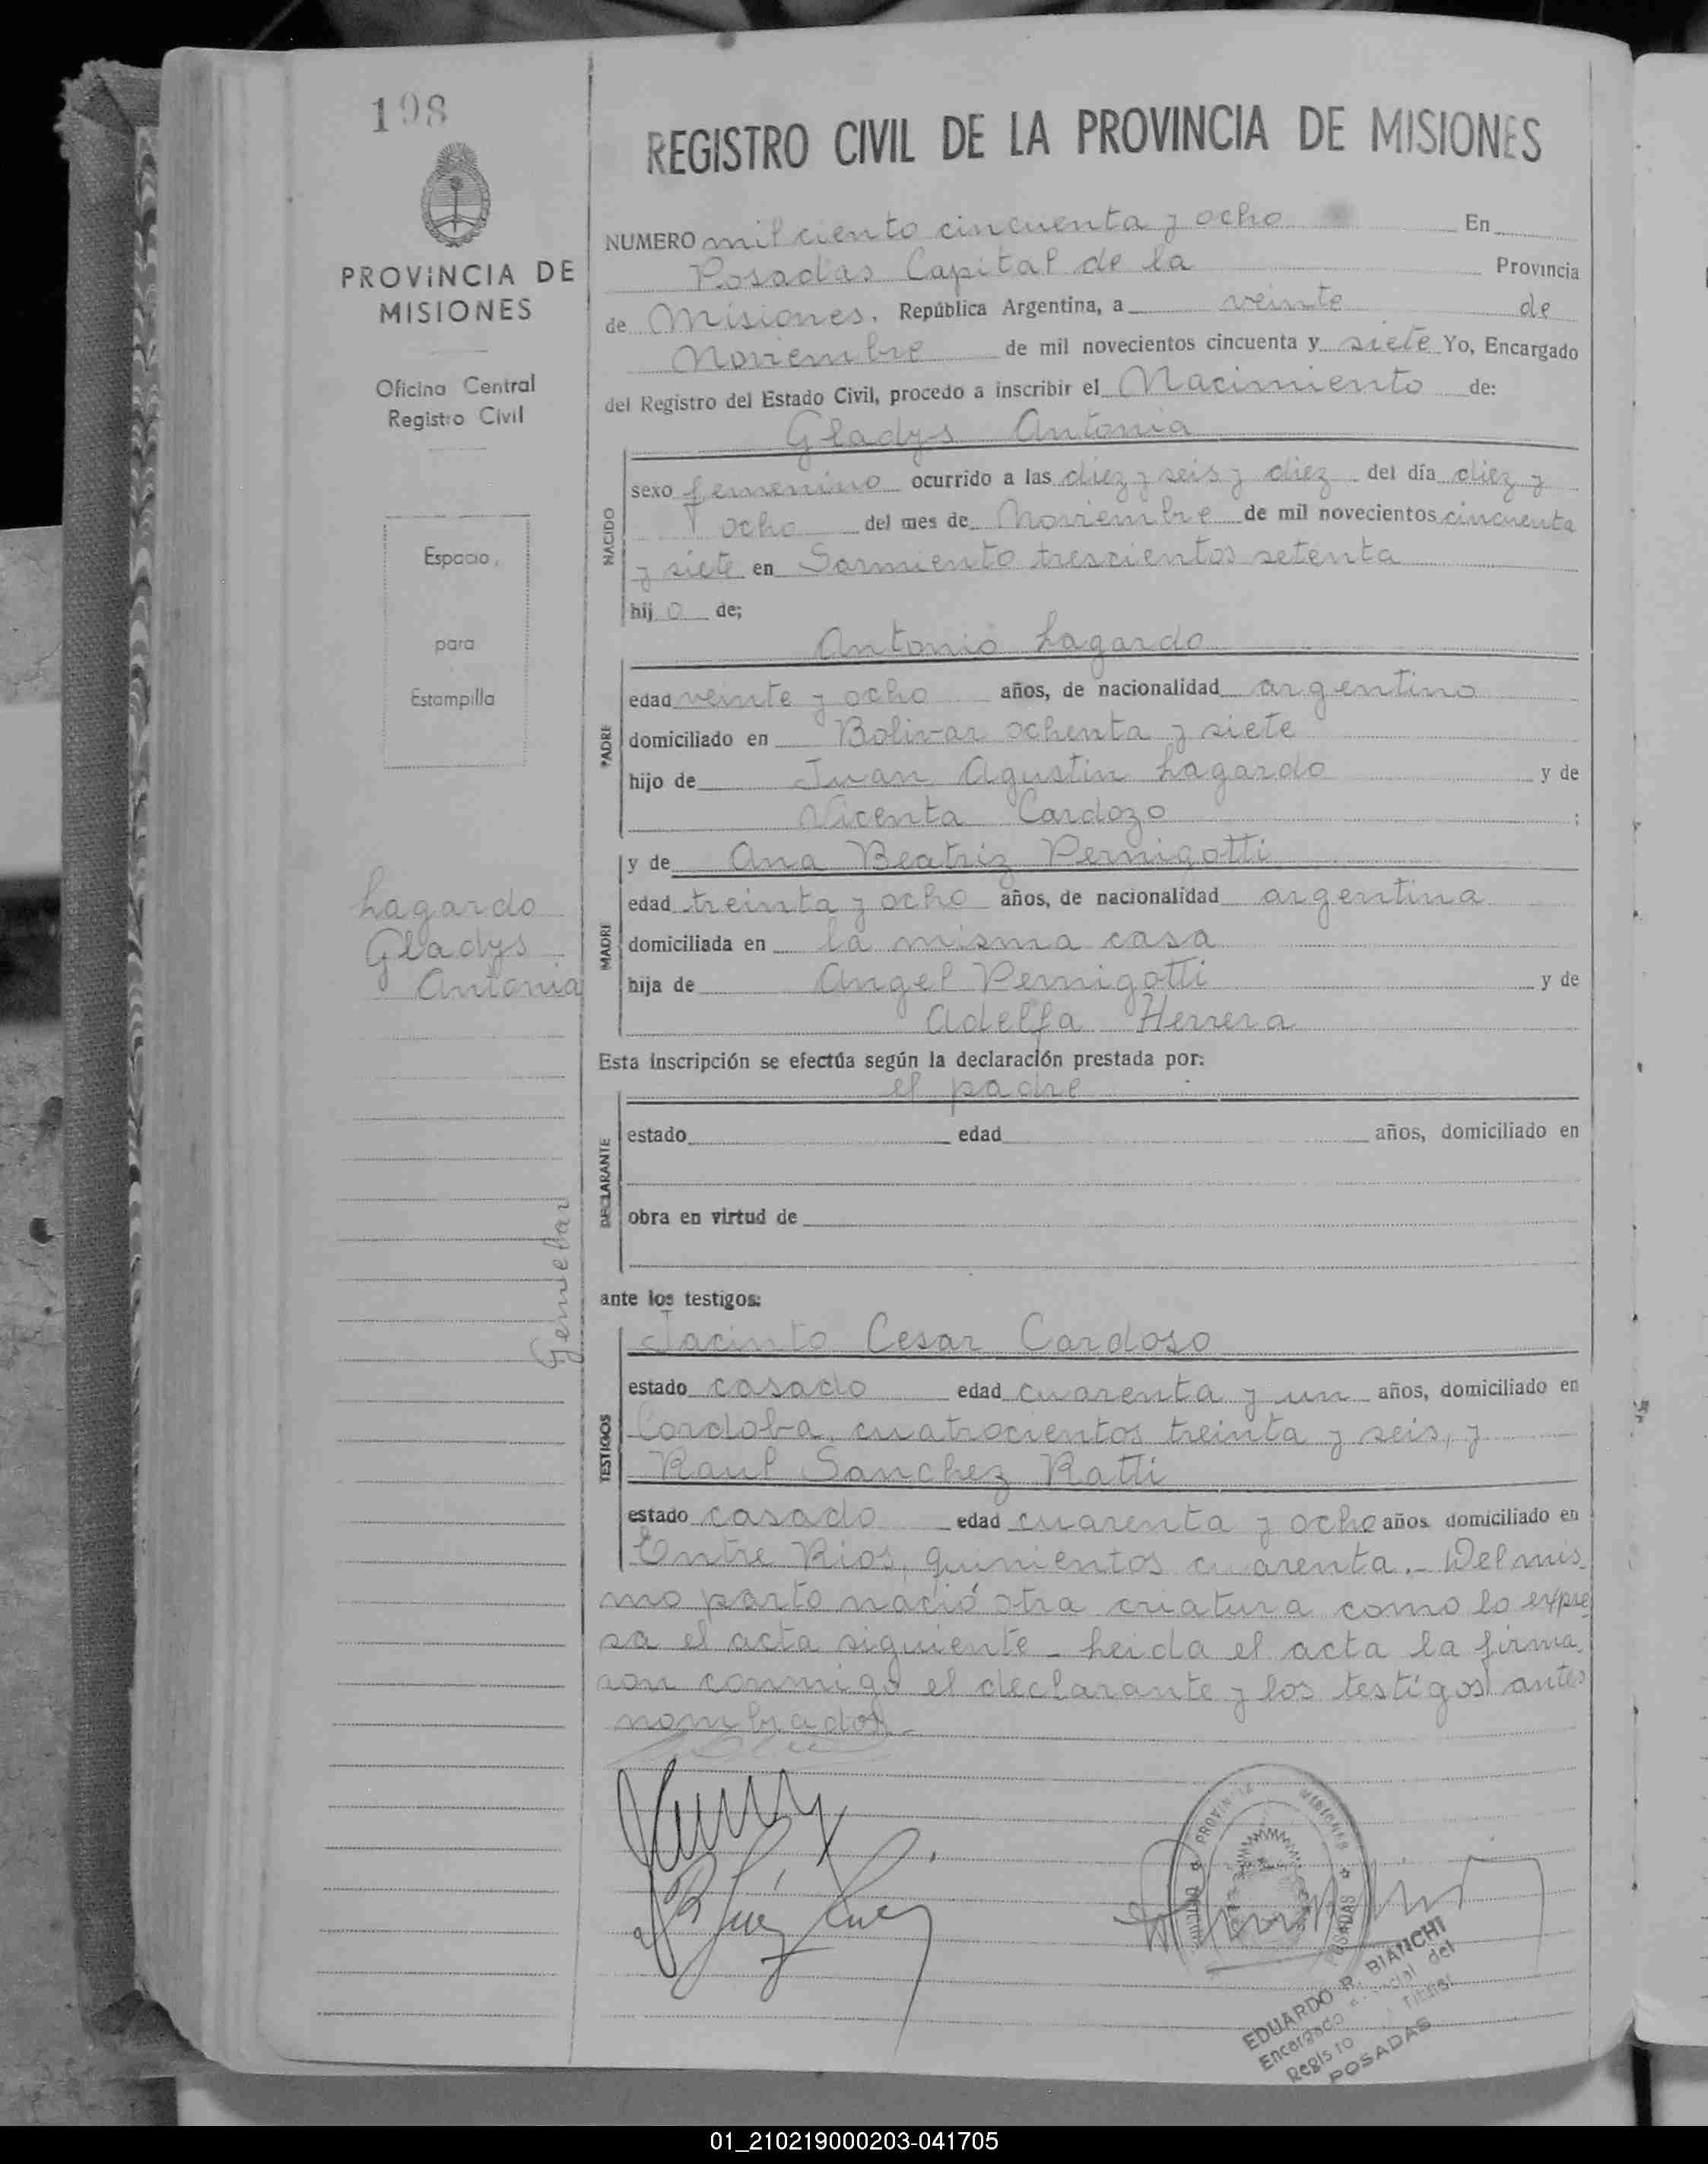 198
PROVINCIA DE
MISIONES
Oficina Central
Registro Civil
Espacio
para
Estampilla
Lagardo
Gladys
Antonia
Gemelar
REGISTRO CIVIL DE LA PROVINCIA DE MISIONES
NUMERO mil ciento cincuenta y ocho En
Posadas Capital de la Provincia
de Misiones. República Argentina, a veinte de
Noviembre de mil novecientos cincuenta y siete Yo, Encargado
del Registro del Estado Civil, procedo a inscribir el Nacimiento de:
Gladys Antonia
NACIDO
sexo femenino ocurrido a las diez y seis y diez del día diez y
ocho del mes de Noviembre de mil novecientos cincuenta
y siete en Sarmiento trescientos setenta
hij a de;
Antonio Lagardo
PADRE
edad veinte y ocho años, de nacionalidad argentino
domiciliado en Bolivar ochenta y siete
hijo de Juan Agustin Lagardo y de
Vicenta Cardozo ;
y de Ana Beatriz Pernigotti
MADRE
edad treinta y ocho años, de nacionalidad argentina
domiciliada en la misma casa
hija de Angel Pernigotti y de
Adelfa Herrera
Esta inscripción se efectúa según la declaración prestada por:
el padre
DECLARANTE
estado edad años, domiciliado en
obra en virtud de
ante los testigos:
Jacinto Cesar Cardoso
TESTIGOS
estado casado edad cuarenta y un años, domiciliado en
Cordoba, cuatrocientos treinta y seis, y
Raul Sanchez Ratti
estado casado edad cuarenta y ocho años domiciliado en
Entre Rios, quinientos cuarenta.- Del mis-
mo parto nació otra criatura como lo expre
sa el acta siguiente - Leida el acta la firma-
ron conmigo el declarante y los testigos antes
nombrados.-
PROVINCIA MISIONES
POSADAS
EDUARDO R. BIANCHI
Encargado del
Registro Titular
POSADAS
01_210219000203-041705